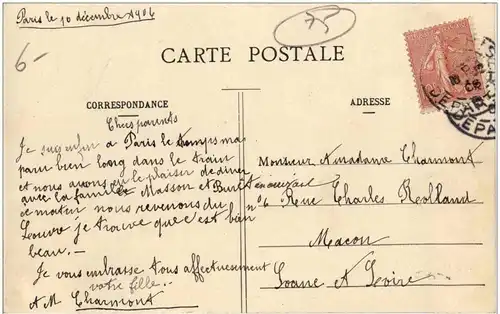 Paris le 10 décembre 1906
75
6-
CARTE POSTALE
CORRESPONDANCE
ADRESSE
Chers parents
Je suis enfin a Paris le temps ma
paru bien long dans le train
et nous avons eu le plaisir de diner
avec la famille Masson et
ce matin nous revenons du
Louvre je trouve que c'est bien
beau. —
Je vous embrasse tous affectueusement
votre fille.
A M Charmont
Monsieur et madame Charmont
n°6 Rue Charles Rolland
Macon
Saone et Loire
DEPART